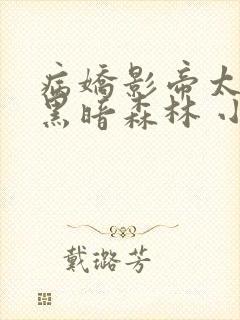 病嬌影帝太
黑暗森林 小
戴璐芳